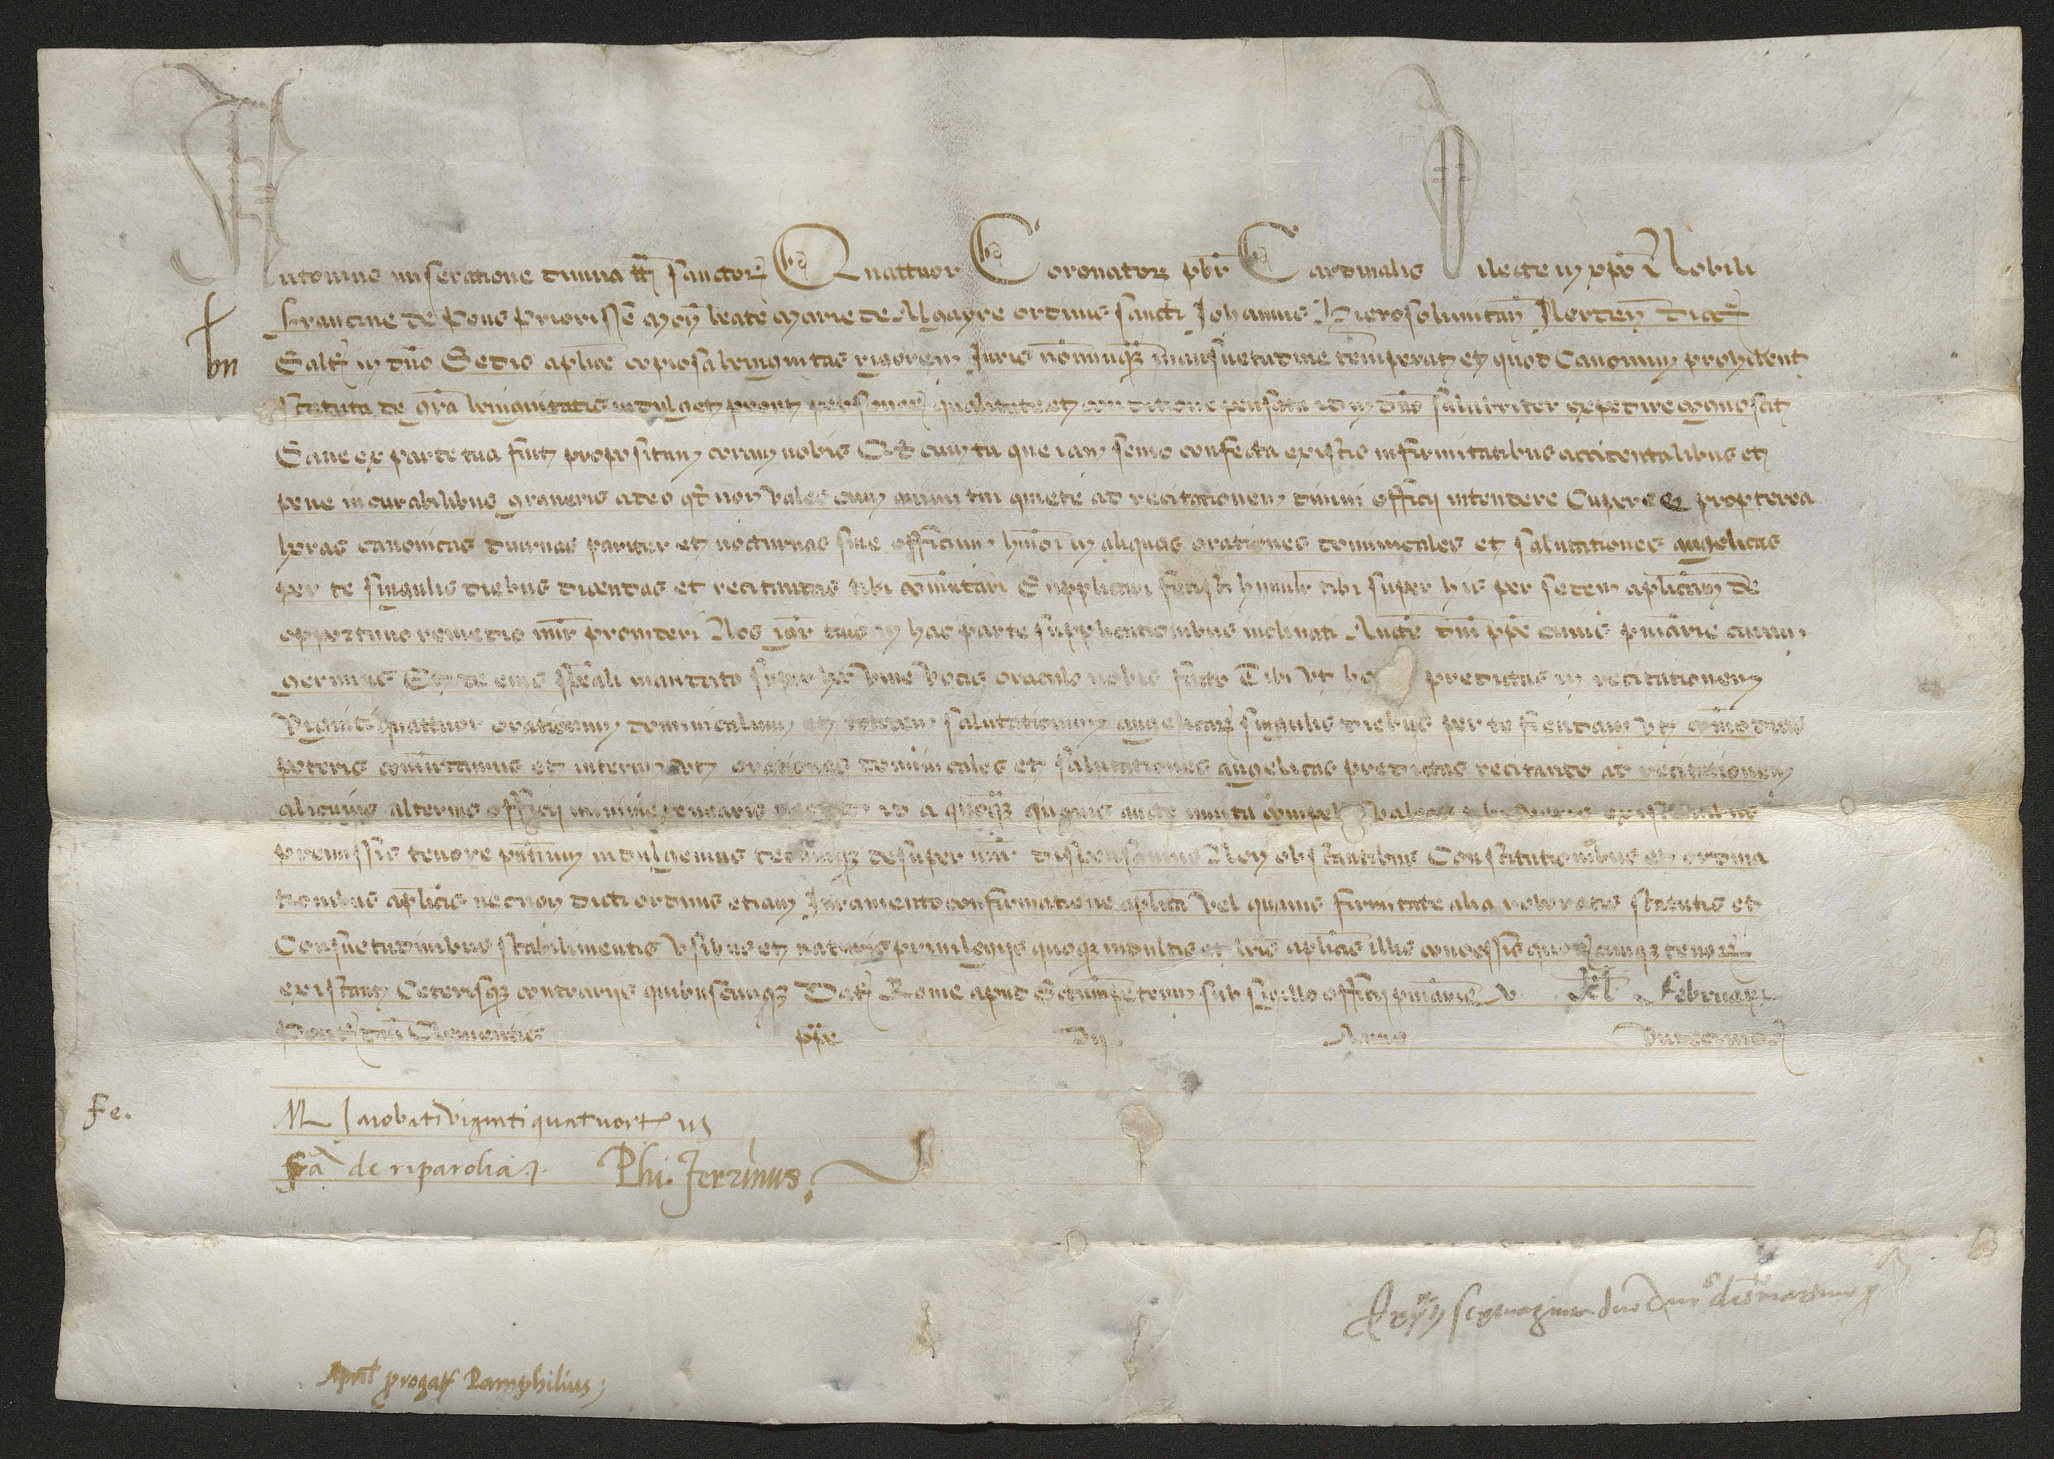 Antonius miseratione divina tt̄ sanctor̄ Quattuor Coronator̄ pbr̄ Cardinalis Dilecte in xpō Nobili
Francine de Pons Priorisse Mon̄ beate Marie de Alguayre ordinis sancti Johannis Hierosolimitan̄ Ilerden̄ dioc̄
bn
Salt̄m in dn̄o Sedis aplice copiosa benignitas rigorem Juris nōnnunq̄ mansuetudine temperat et quod Canonum prohibent
statuta de gr̄a benignitatis indulget prout personar̄ qualitate et conditione pensata id in dn̄o salubriter expedire cognoscit
Sane ex parte tua fuit propositum coram nobis Qd̄ cum tu que iam senio confecta existis infirmitatibus accidentalibus et
pene incurabilibus graveris adeo qd̄ non vales cum animi tui quiete ad recitationem divini officii intendere Cupereq propterea
horas canonicas diurnas pariter et nocturnas sive officium hmōi in aliquas orationes dominicales et salutationes angelicas
per te singulis diebus dicendas et recitandas tibi commutari Supplicari fecisti humilr̄ tibi super his per sedem aplicam de
opportuno remedio mir̄ provideri Nos igr̄ tuis in hac parte supplicationibus inclinati Auctē dn̄i ppē cuius pn̄iarie curam
gerimus Et de eius spēali mandato super hoc vive vocis oraculo nobis facto Tibi ut ho predictas in recitationem
viginti quattuor orationum dominicalium et totidem salutationum angelicar̄ singulis diebus per te fiendam ut comodius
poteris commutamus et interim orationes dominicales et salutationes angelicas predictas recitando ad recitationem
alicuius alterius officii minime tenearis id a quoq̄ quavis auctē invita compelli valeas
premissis tenore pn̄tium indulgemus tecumq̄ desuper mir̄ dispensamus Non obstantibus Constitutionibus et ordina
tionibus aplicis necnon dicti ordinis etiam Juramento confirmatione aplica vel quavis firmitate alia roboratis statutis et
Consuetudinibus stabilimentis usibus et naturis privilegiis quoq̄ indultis et lr̄is aplicis illis concessis quorumcunq̄ tenor̄
existant Ceterisq̄ contrariis quibuscunq̄ Dat̄ Rome apud Sanctumpetrum sub sigillo officii pn̄iarie v kl̄ Februarii
Pont̄ dn̄i Clementis ppē vii Anno Undecimo
Fe.
M Jacobati viginti quatuor t us
Fa de riparolia Phi. Ferrinus
duo
Pamphilius